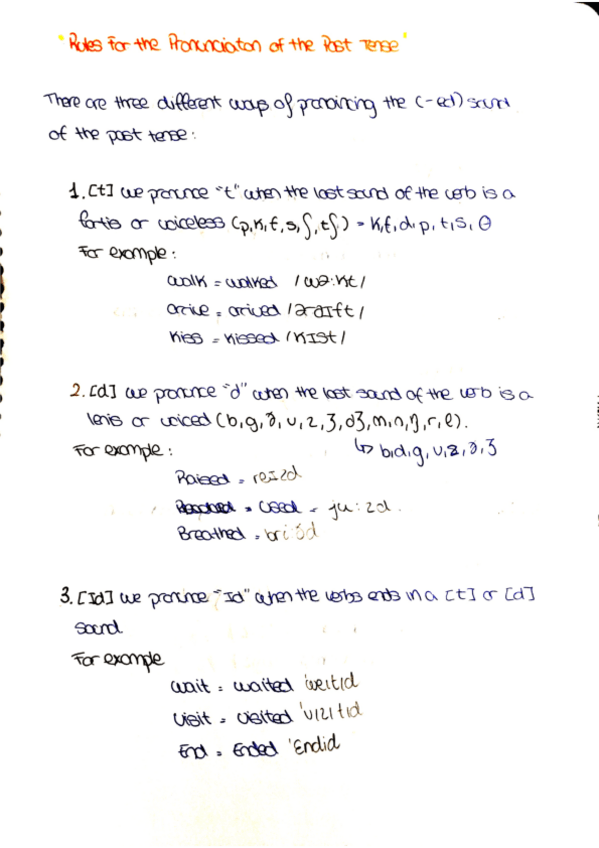 "Rules for the Pronunciation of the Past Tense"
There are three different ways of pronouncing the (-ed) sound
of the past tense:
1. [t] we pronunce "t" when the last sound of the verb is a
fortis or voiceless (p, k, f, s, ʃ, tʃ) = k, f, d, p, t, s, θ
For example:
walk = walked /wɔ:kt/
arrive = arrived /əraɪft/
Kiss = kissed /kɪst/
2. [d] we pronunce "d" when the last sound of the verb is a
lenis or voiced (b, g, ð, v, z, ʒ, dʒ, m, n, ŋ, r, l).
For example: ↳ b, d, g, v, z, ð, ʒ
Raised = reɪzd
= Used = ju:zd.
Breathed = bri:ðd
3. [Id] we pronunce "Id" when the verbs ends in a [t] or [d]
sound
For example
wait = waited 'weɪtɪd
visit = visited 'vɪzɪtɪd
End = Ended 'Endid